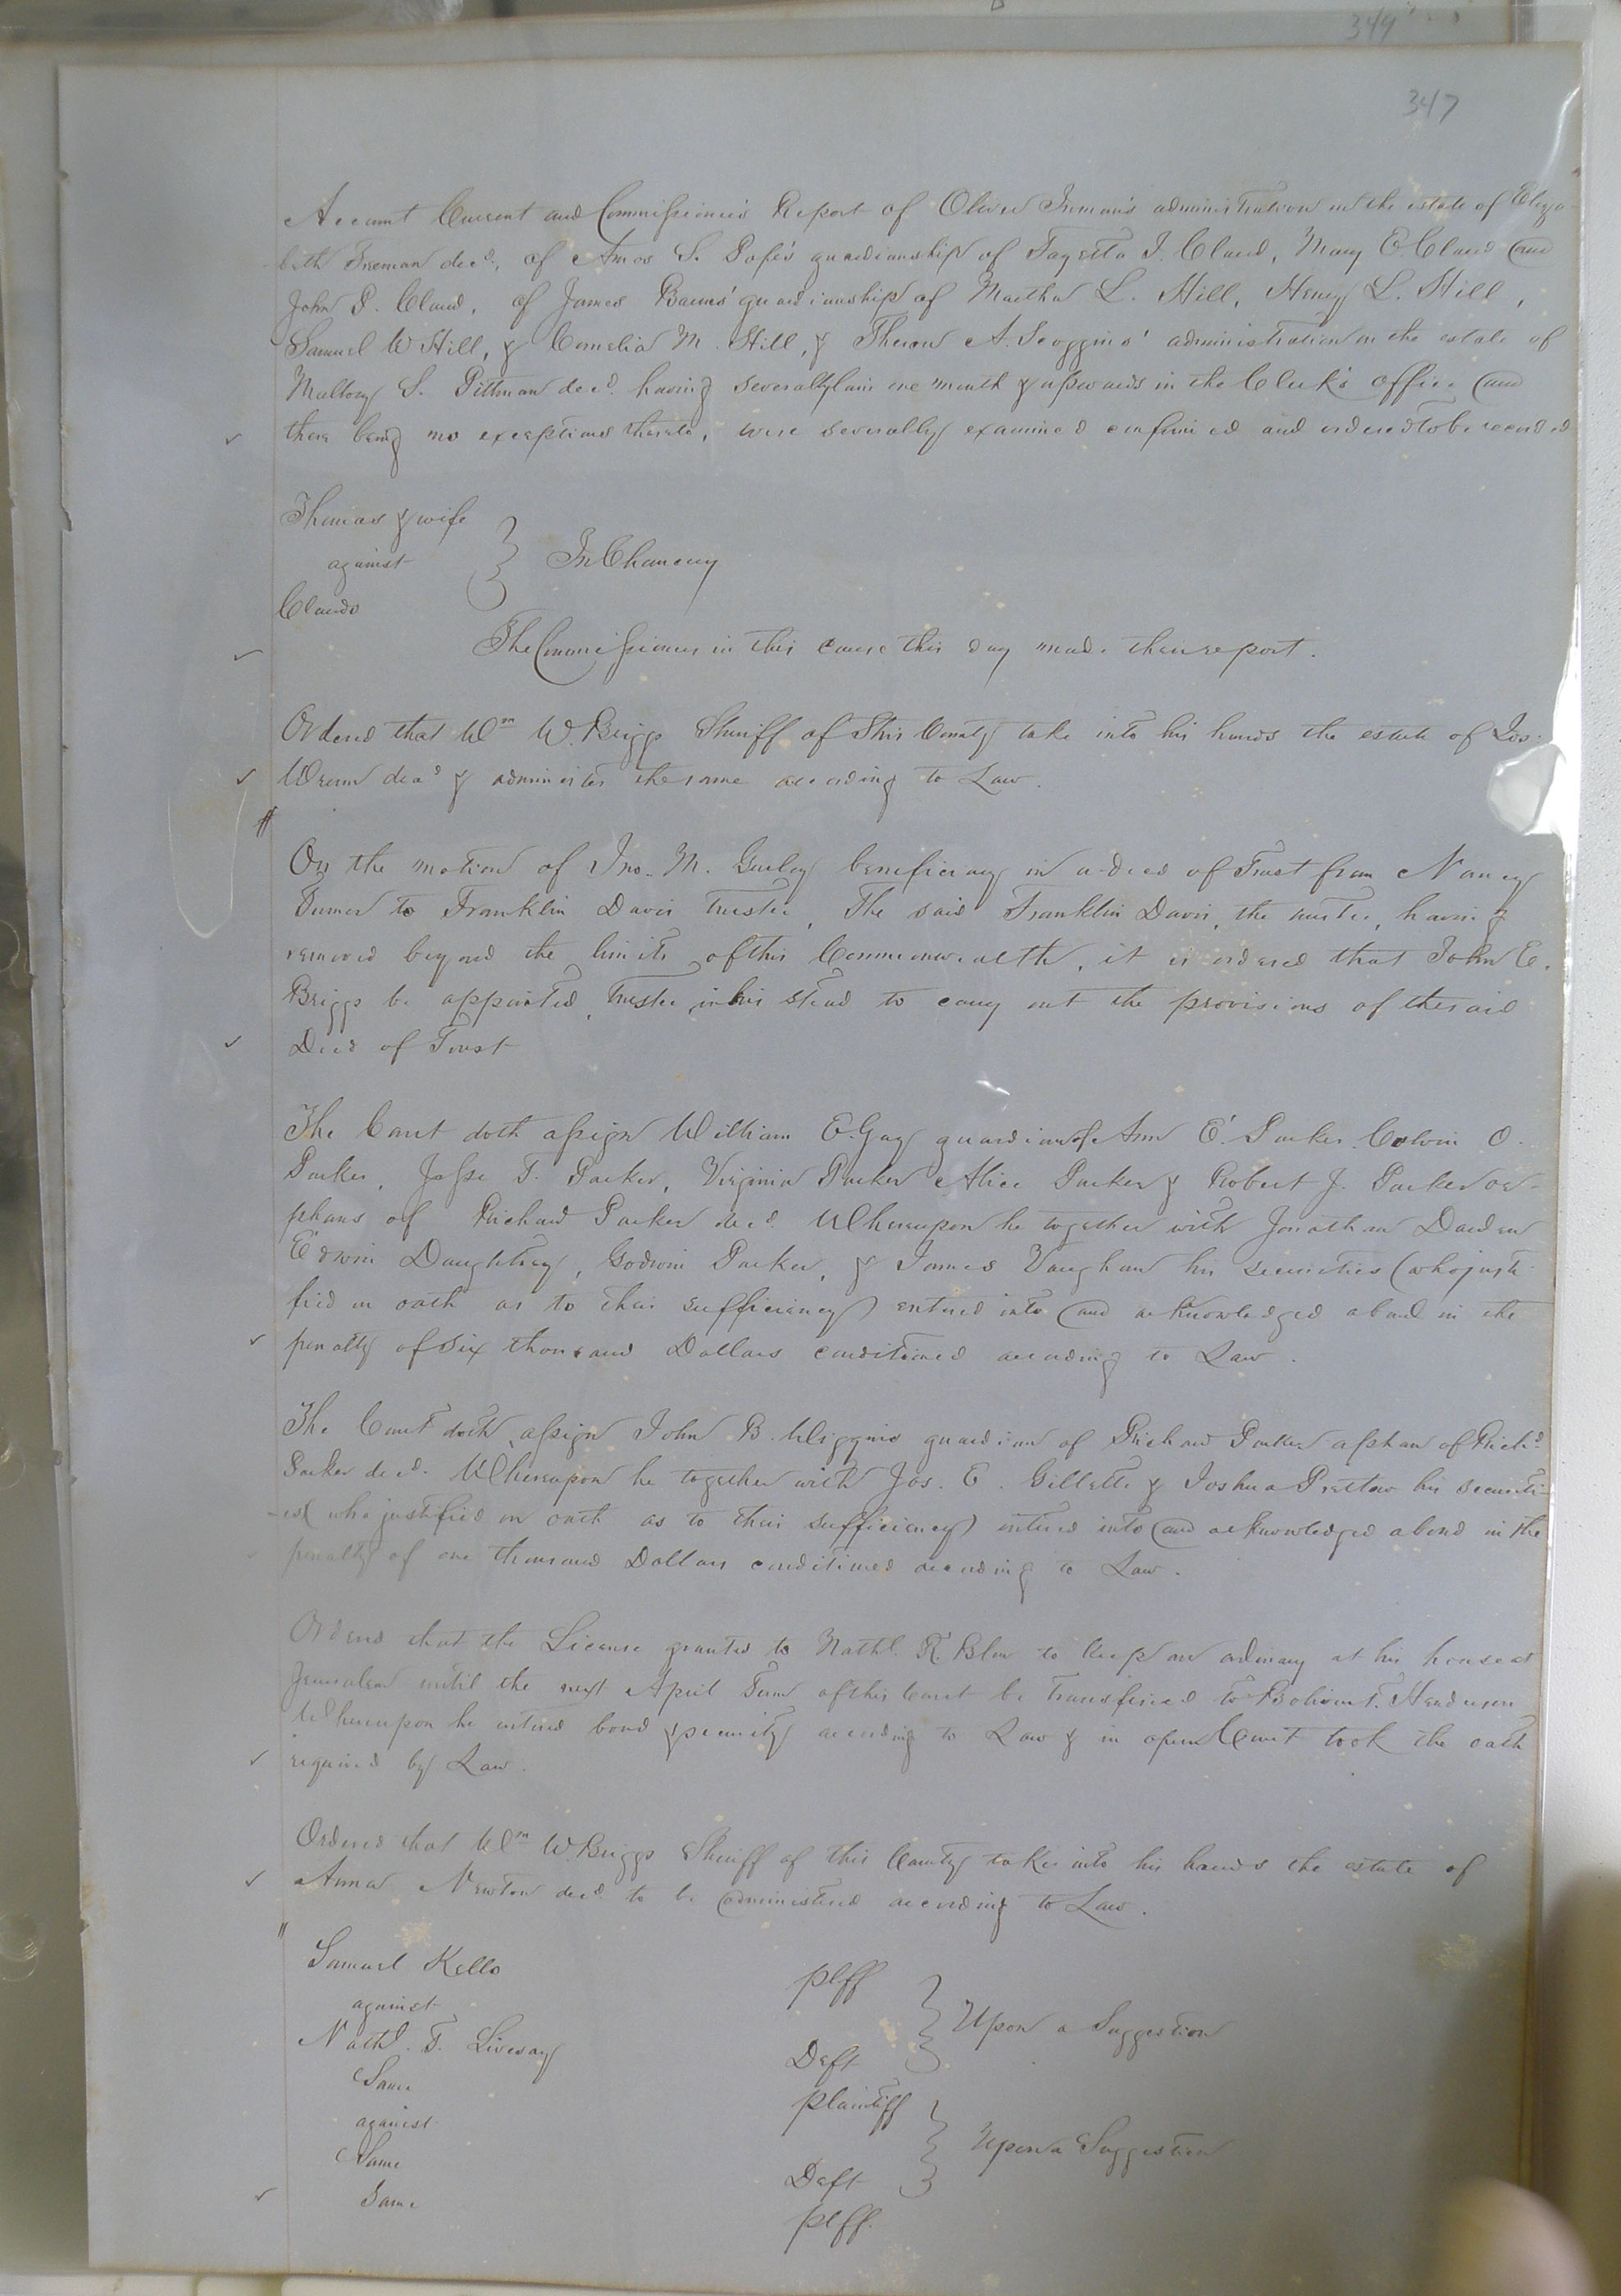 349
347
Account Current and Commissioner's Report of Oliver Inman's administration on the estate of Eliza-
beth Inman decd, of Amos S. Pope's guardianship of Fayetta J. Claud, Mary E. Claud and
John P. Claud, of James Barnes' guardianship of Martha L. Hill, Henry L. Hill,
Samuel W Hill, & Cornelia M. Hill, & Theron A. Scoggins' administration on the estate of
Mallory S. Pittman decd. having severally lain one month & upwards in the Clerk's office and
there being no exceptions thereto, were severally examined confirmed and ordered to be recorded
Thomas & wife
against } In Chancery
Clauds
The Commissioners in this cause this day made their report.
Ordered that Wm W. Briggs Sheriff of this County take into his hands the estate of Jos.
decd & administer the same according to Law.
On the motion of Jno. M. Gurley beneficiary in a deed of Trust from Nancy
Turner to Franklin Davis trustee, The said Franklin Davis, the trustee, having
removed beyond the limits of this Commonwealth, it is ordered that John E.
Briggs be appointed, Trustee in his stead to carry out the provisions of the said
Deed of Trust
The Court doth assign William E. Gay guardian of Ann E. Parker Colvin O.
Parker, Jesse T. Parker, Virginia Parker Alice Parker & Robert J. Parker or-
phans of Richard Parker decd. Whereupon he together with Jonathan Darden
Edwin Daughtrey, Godwin Parker, & James Vaughan his securities (who justi
fied on oath as to their sufficiency) entered into and acknowledged a bond in the
penalty of six thousand Dollars conditioned according to Law.
The Court doth assign John B. Wiggins guardian of Richard Parker orphan of Richd
Parker decd. Whereupon he together with Jos. E. Gillette & Joshua Pretlow his securiti-
-es (who justified on oath as to their sufficiency) entered into and acknowledged a bond in the
penalty of one thousand Dollars conditioned according to Law.
Ordered that the License granted to Nathl. R. Blow to keep an ordinary at his house at
Jerusalem until the next April Term of this Court be transferred to T. Henderson
Whereupon he entered bond & security according to Law & in open Court took the oath
required by Law.
Ordered that Wm W. Briggs Sheriff of this County take into his hands the estate of
Anna Newton decd. to be administered according to Law.
Samuel Kello plff
against } Upon a Suggestion
Nathl. T. Livesay Deft
Same plaintiff
against } Upon a Suggestion
Same Deft
Same plff.